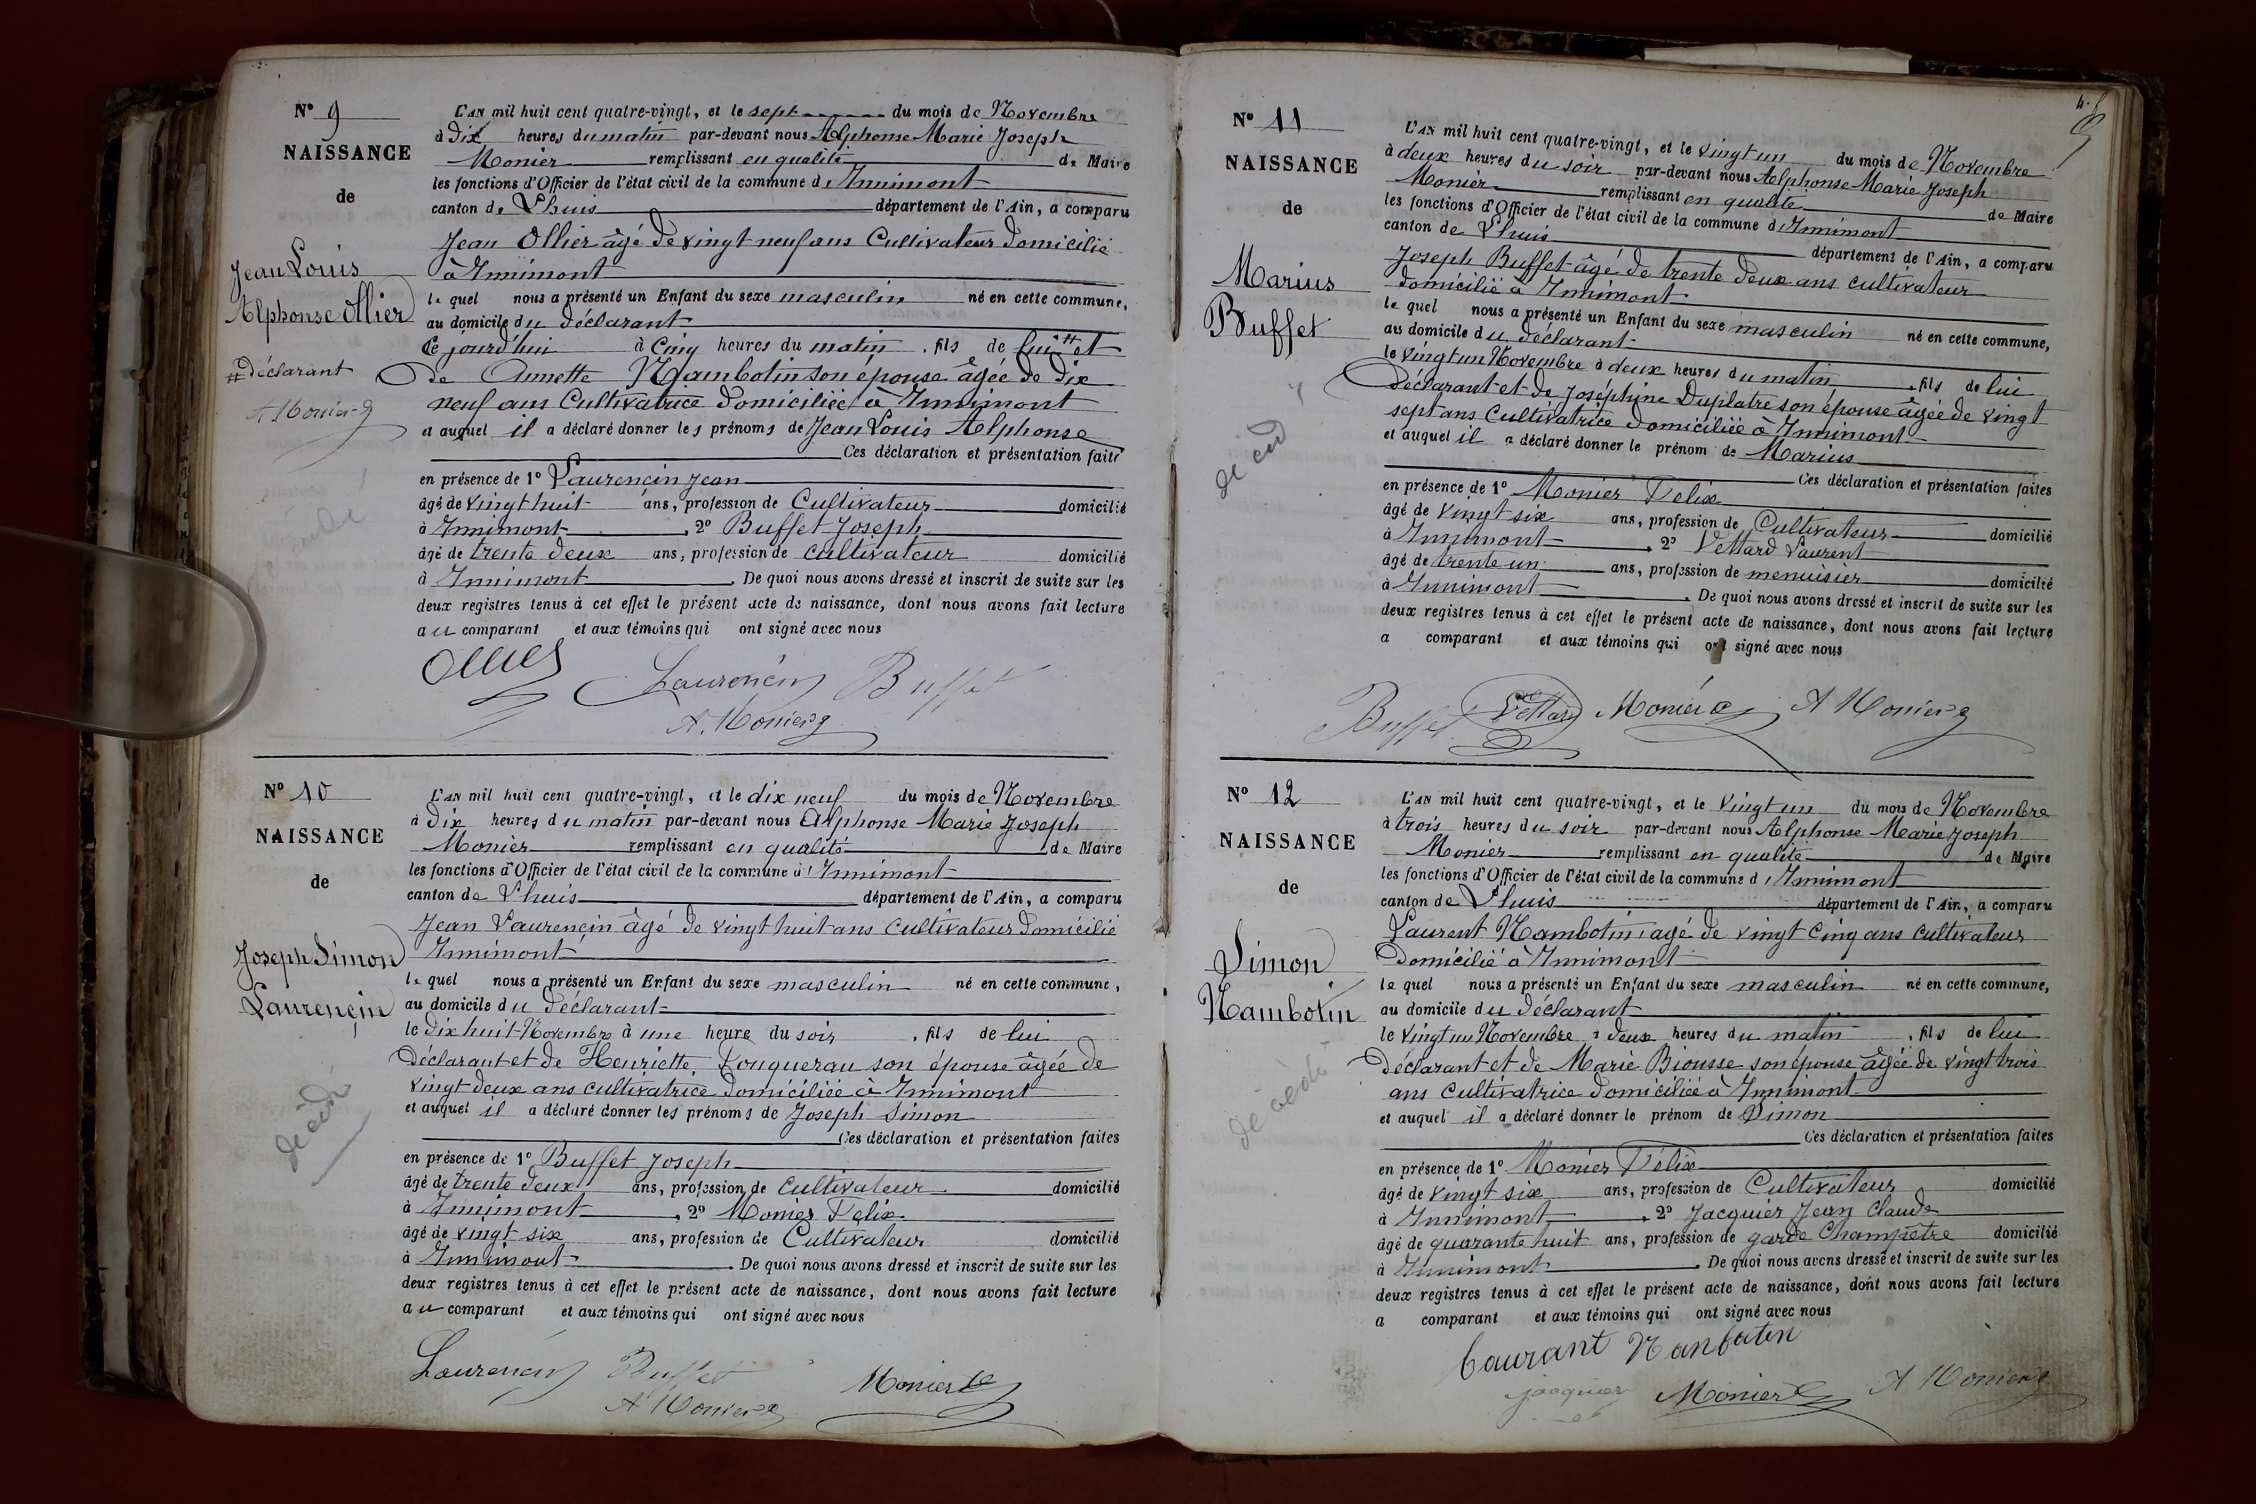 Nº 9
NAISSANCE
de
Jean Louis
Alphonse Ollier
# déclarant
A Monier
L'AN mil huit cent quatre-vingt, et le sept du mois de Novembre
à Dix heures du matin par-devant nous Alphonse Marie Joseph
Monier remplissant en qualité de Maire
les fonctions d'Officier de l'état civil de la commune d'Innimont
canton de Lhuis département de l'Ain, a comparu
Jean Ollier âgé de vingt neuf ans Cultivateur domicilié
à Innimont
le quel nous a présenté un Enfant du sexe masculin né en cette commune,
au domicile du déclarant
Ce jourd'hui à Cinq heures du matin, fils de lui # et
de Annette Nambotin son épouse âgée de dix
neuf ans Cultivatrice domiciliée à Innimont
et auquel il a déclaré donner les prénoms de Jean Louis Alphonse
Ces déclaration et présentation faites
en présence de 1º Laurencin Jean
âgé de vingt huit ans, profession de Cultivateur domicilié
à Innimont, 2º Buffet Joseph
âgé de trente deux ans, profession de cultivateur domicilié
à Innimont. De quoi nous avons dressé et inscrit de suite sur les
deux registres tenus à cet effet le présent acte de naissance, dont nous avons fait lecture
au comparant et aux témoins qui ont signé avec nous
Ollier
Laurencin Buffet
A. Monier
Nº 10
NAISSANCE
de
Joseph Simon
Laurençin
décédé
L'AN mil huit cent quatre-vingt, et le dix neuf du mois de Novembre
à Dix heures du matin par-devant nous Alphonse Marie Joseph
Monier remplissant en qualité de Maire
les fonctions d'Officier de l'état civil de la commune d'Innimont
canton de Lhuis département de l'Ain, a comparu
Jean Laurençin âgé de vingt huit ans cultivateur domicilié
Innimont
le quel nous a présenté un Enfant du sexe masculin né en cette commune,
au domicile du déclarant
le dix huit Novembre à une heure du soir, fils de lui
Déclarant et de Henriette Fouquerau son épouse âgée de
vingt deux ans cultivatrice domiciliée à Innimont
et auquel il a déclaré donner les prénoms de Joseph Simon
Ces déclaration et présentation faites
en présence de 1º Buffet Joseph
âgé de trente deux ans, profession de Cultivateur domicilié
à Innimont, 2º Monier Félix
âgé de vingt six ans, profession de Cultivateur domicilié
à Innimont. De quoi nous avons dressé et inscrit de suite sur les
deux registres tenus à cet effet le présent acte de naissance, dont nous avons fait lecture
au comparant et aux témoins qui ont signé avec nous
Laurencin Buffet Monier
A Monier
Nº 11
NAISSANCE
de
Marius
Buffet
décédé
L'AN mil huit cent quatre-vingt, et le vingt un du mois de Novembre
à deux heures du soir par-devant nous Alphonse Marie Joseph
Monier remplissant en qualité de Maire
les fonctions d'Officier de l'état civil de la commune d'Innimont
canton de Lhuis département de l'Ain, a comparu
Joseph Buffet âgé de trente deux ans cultivateur
domicilié à Innimont
le quel nous a présenté un Enfant du sexe masculin né en cette commune,
au domicile du déclarant
le vingt un Novembre à deux heures du matin, fils de lui
déclarant et de Joséphine Duplatre son épouse âgée de vingt
sept ans Cultivatrice domiciliée à Innimont
et auquel il a déclaré donner le prénom de Marius
Ces déclaration et présentation faites
en présence de 1º Monier Felix
âgé de vingt six ans, profession de Cultivateur domicilié
à Innimont, 2º Vettard Laurent
âgé de trente un ans, profession de menuisier domicilié
à Innimont. De quoi nous avons dressé et inscrit de suite sur les
deux registres tenus à cet effet le présent acte de naissance, dont nous avons fait lecture
a comparant et aux témoins qui ont signé avec nous
Buffet Vettard Monier A Monier
Nº 12
NAISSANCE
de
Simon
Nambotin
décédé
L'AN mil huit cent quatre-vingt, et le vingt un du mois de Novembre
à trois heures du soir par-devant nous Alphonse Marie Joseph
Monier remplissant en qualité de Maire
les fonctions d'Officier de l'état civil de la commune d'Innimont
canton de Lhuis département de l'Ain, a comparu
Laurent Nambotin agé de vingt Cinq ans cultivateur
Domicilié à Innimont
le quel nous a présenté un Enfant du sexe masculin né en cette commune,
au domicile du déclarant
le vingt un Novembre à deux heures du matin, fils de lui
Déclarant et de Marie Biousse son épouse âgée de vingt trois
ans cultivatrice domiciliée à Innimont
et auquel il a déclaré donner le prénom de Simon
Ces déclaration et présentation faites
en présence de 1º Monier Félix
âgé de vingt six ans, profession de Cultivateur domicilié
à Innimont, 2º Jacquier Jean Claude
âgé de quarante huit ans, profession de garde Champêtre domicilié
à Innimont. De quoi nous avons dressé et inscrit de suite sur les
deux registres tenus à cet effet le présent acte de naissance, dont nous avons fait lecture
a comparant et aux témoins qui ont signé avec nous
Laurant Nanbatin
jacquier Monier A Monier